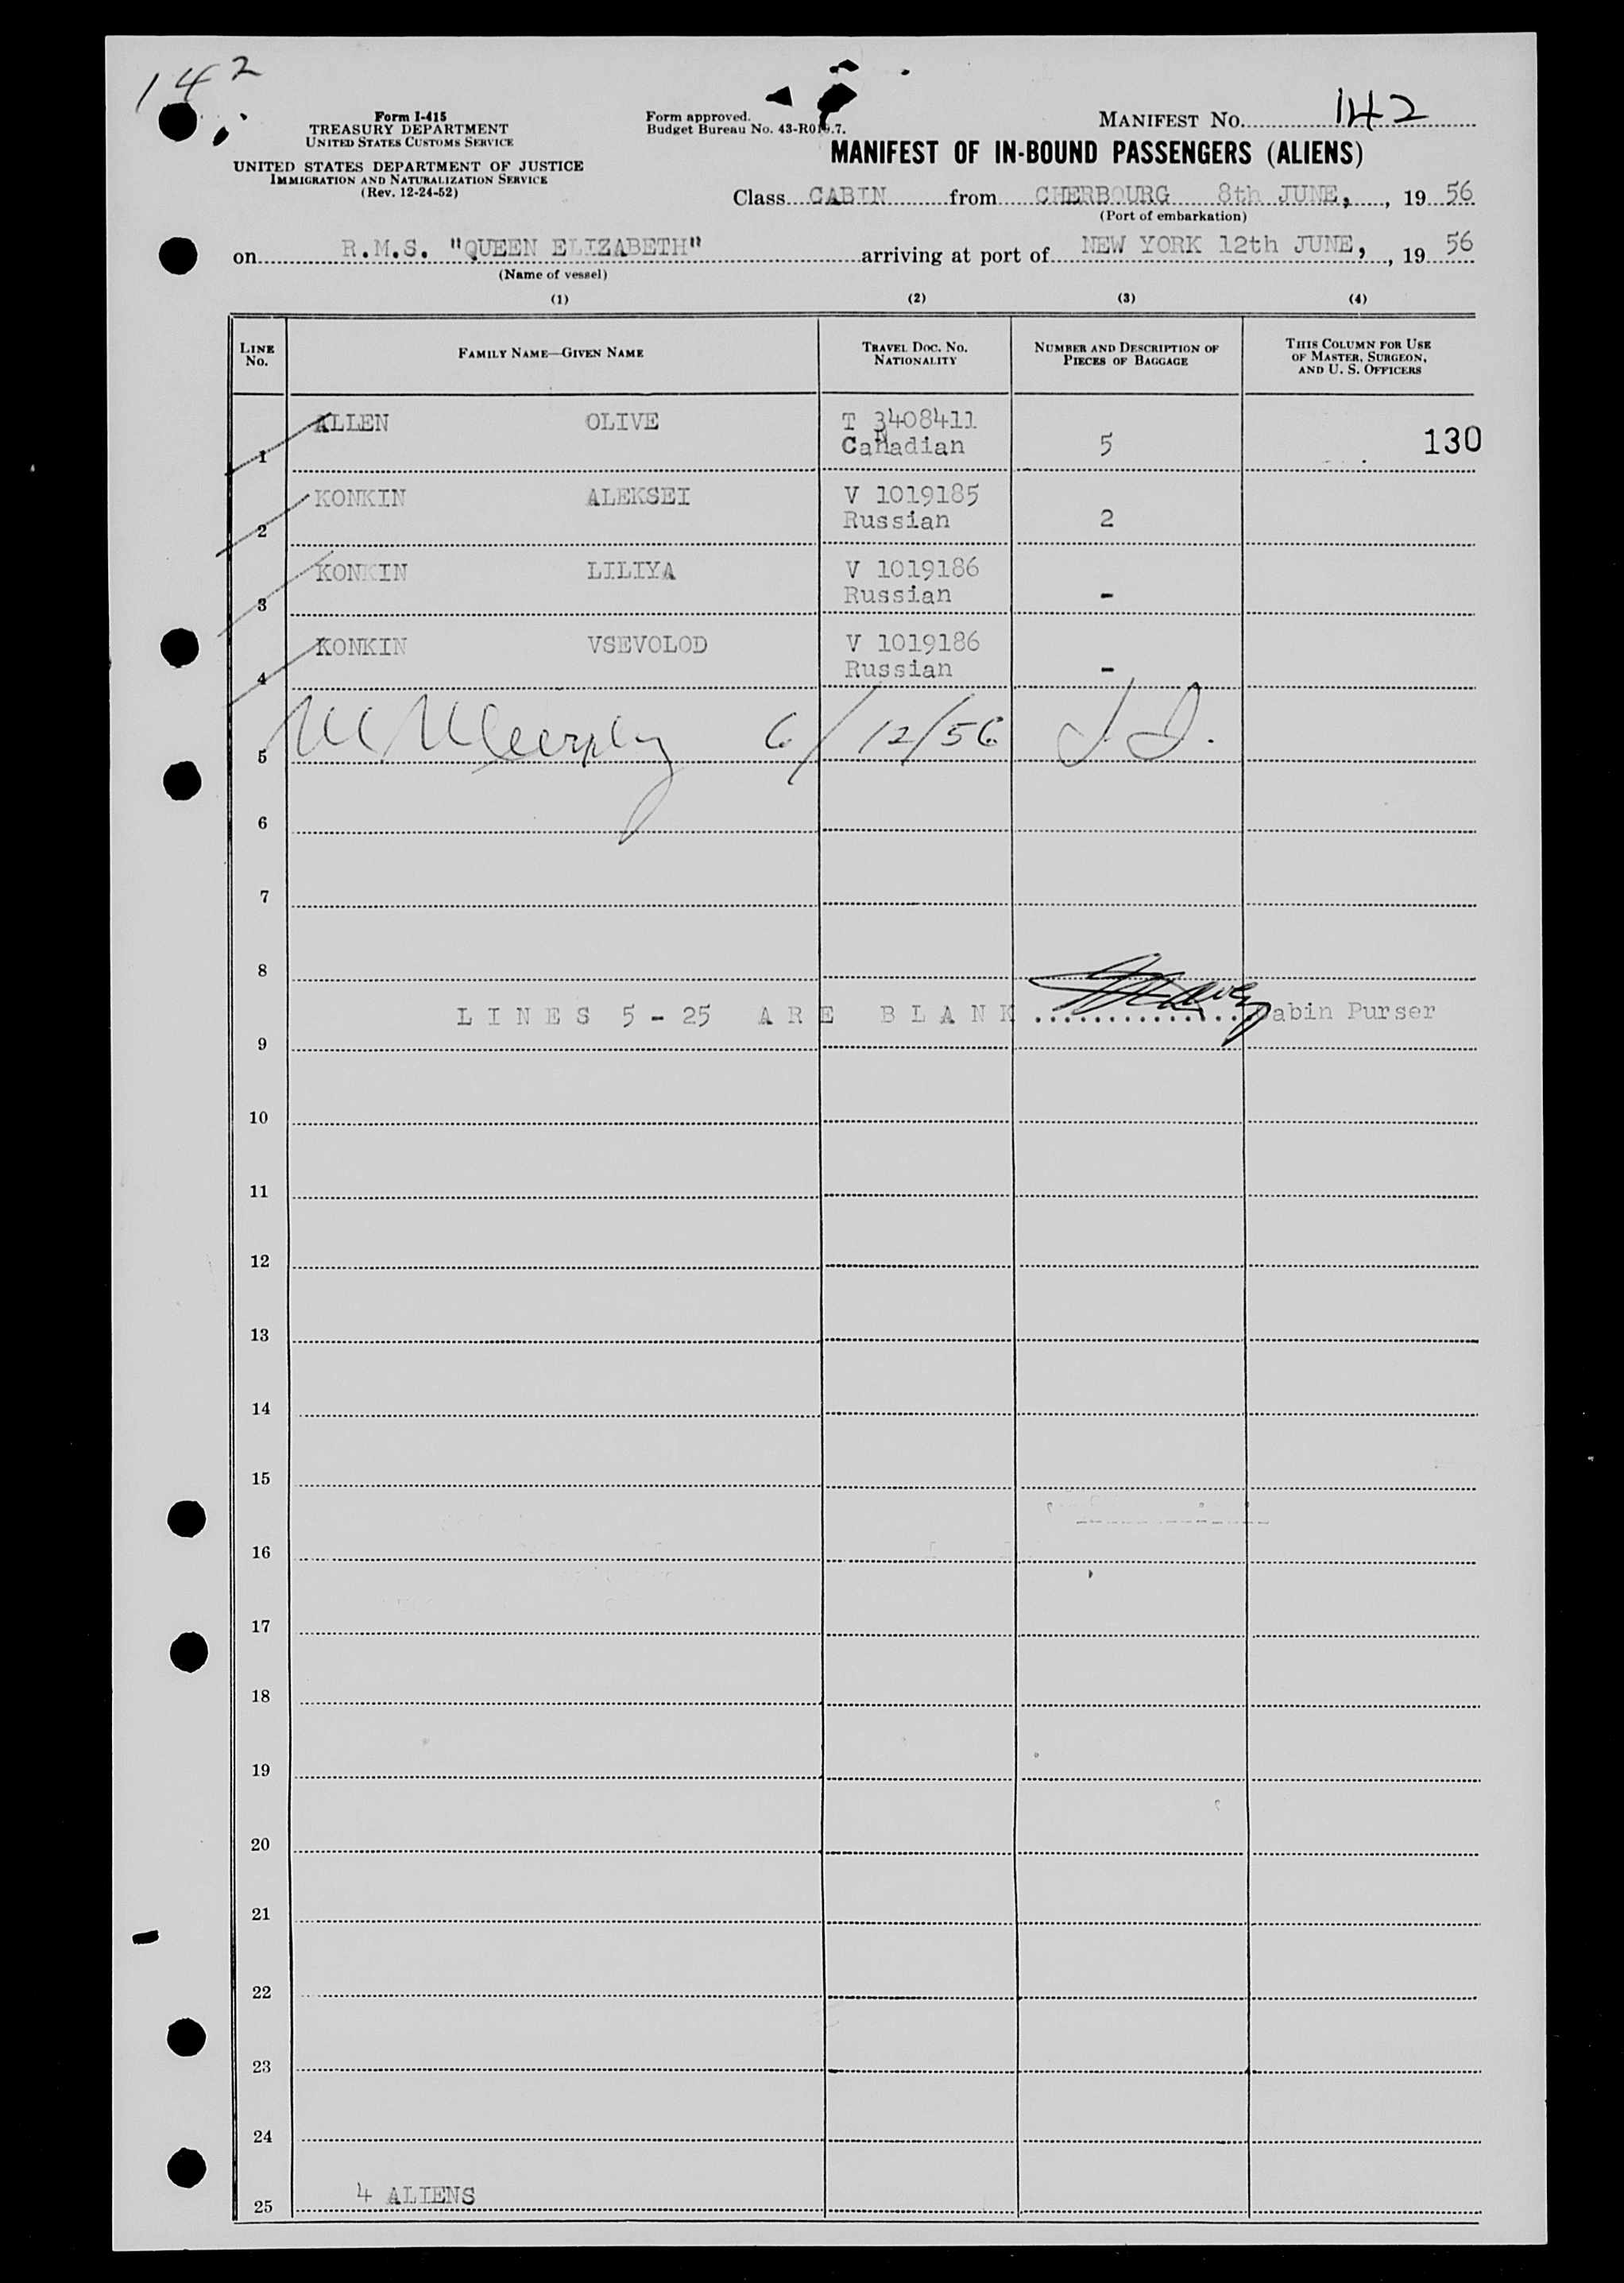 142
Form I-415
TREASURY DEPARTMENT
UNITED STATES CUSTOMS SERVICE
UNITED STATES DEPARTMENT OF JUSTICE
IMMIGRATION AND NATURALIZATION SERVICE
(Rev. 12-24-52)
Form approved.
Budget Bureau No. 43-R019.7.
MANIFEST NO. 142
MANIFEST OF IN-BOUND PASSENGERS (ALIENS)
Class CABIN from CHERBOURG 8th JUNE, , 19 56
(Port of embarkation)
on R.M.S. "QUEEN ELIZABETH" arriving at port of NEW YORK 12th JUNE, , 19 56
(Name of vessel)
(1) (2) (3) (4)
LINE NO. FAMILY NAME—GIVEN NAME TRAVEL DOC. NO. NATIONALITY NUMBER AND DESCRIPTION OF PIECES OF BAGGAGE THIS COLUMN FOR USE OF MASTER, SURGEON, AND U. S. OFFICERS
1 ALLEN OLIVE T 3408411 Canadian 5 130
2 KONKIN ALEKSEI V 1019185 Russian 2
3 KONKIN LILIYA V 1019186 Russian -
4 KONKIN VSEVOLOD V 1019186 Russian -
5 M Murphy 6/12/56
6
7
8
LINES 5 - 25 ARE BLANK Cabin Purser
9
10
11
12
13
14
15
16
17
18
19
20
21
22
23
24
25 4 ALIENS